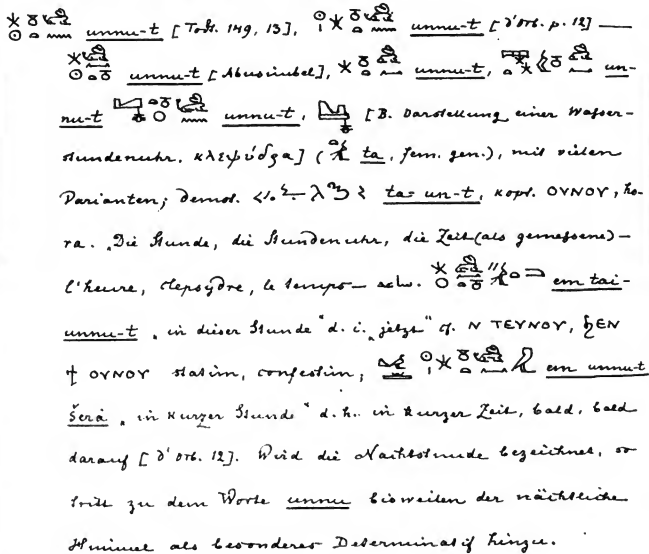 unnu-t [Todt. 149, 13], unnu-t [d'Orb. p. 12] —
unnu-t [Abusimbel], unnu-t, un-
nu-t unnu-t, [B. Darstellung einer Wasser-
stundenuhr, κλεψύδρα] (ta, fem. gen.), mit vielen
Varianten; demot. ta-un-t, kopt. ΟΥΝΟΥ, ho-
ra. „Die Stunde, die Stundenuhr, die Zeit (als gemessene) –
l'heure, clepsydre, le temps – adv. em tai-
unnu-t „in dieser Stunde“ d. i. „jetzt“ cf. Ν ΤΕΥΝΟΥ, ϦΕΝ
ϯ ΟΥΝΟΥ statim, confestim; em unnu-t
šerà „in kurzer Stunde“ d. h. in kurzer Zeit, bald, bald
darauf [d'Orb. 12]. Wird die Nachtstunde bezeichnet, so
tritt zu dem Worte unnu bisweilen der nächtliche
Himmel als besonderes Determinatif hinzu.